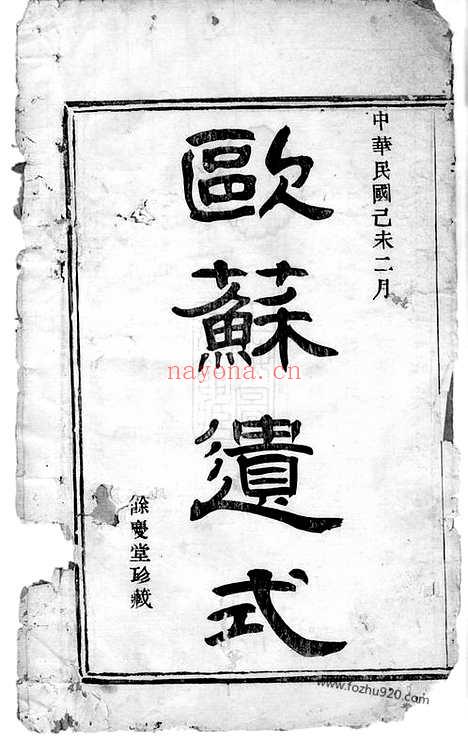 中華民國己未二月
歐蘇遺式
餘慶堂珍藏
nayona.cn
www.fozhu920.com